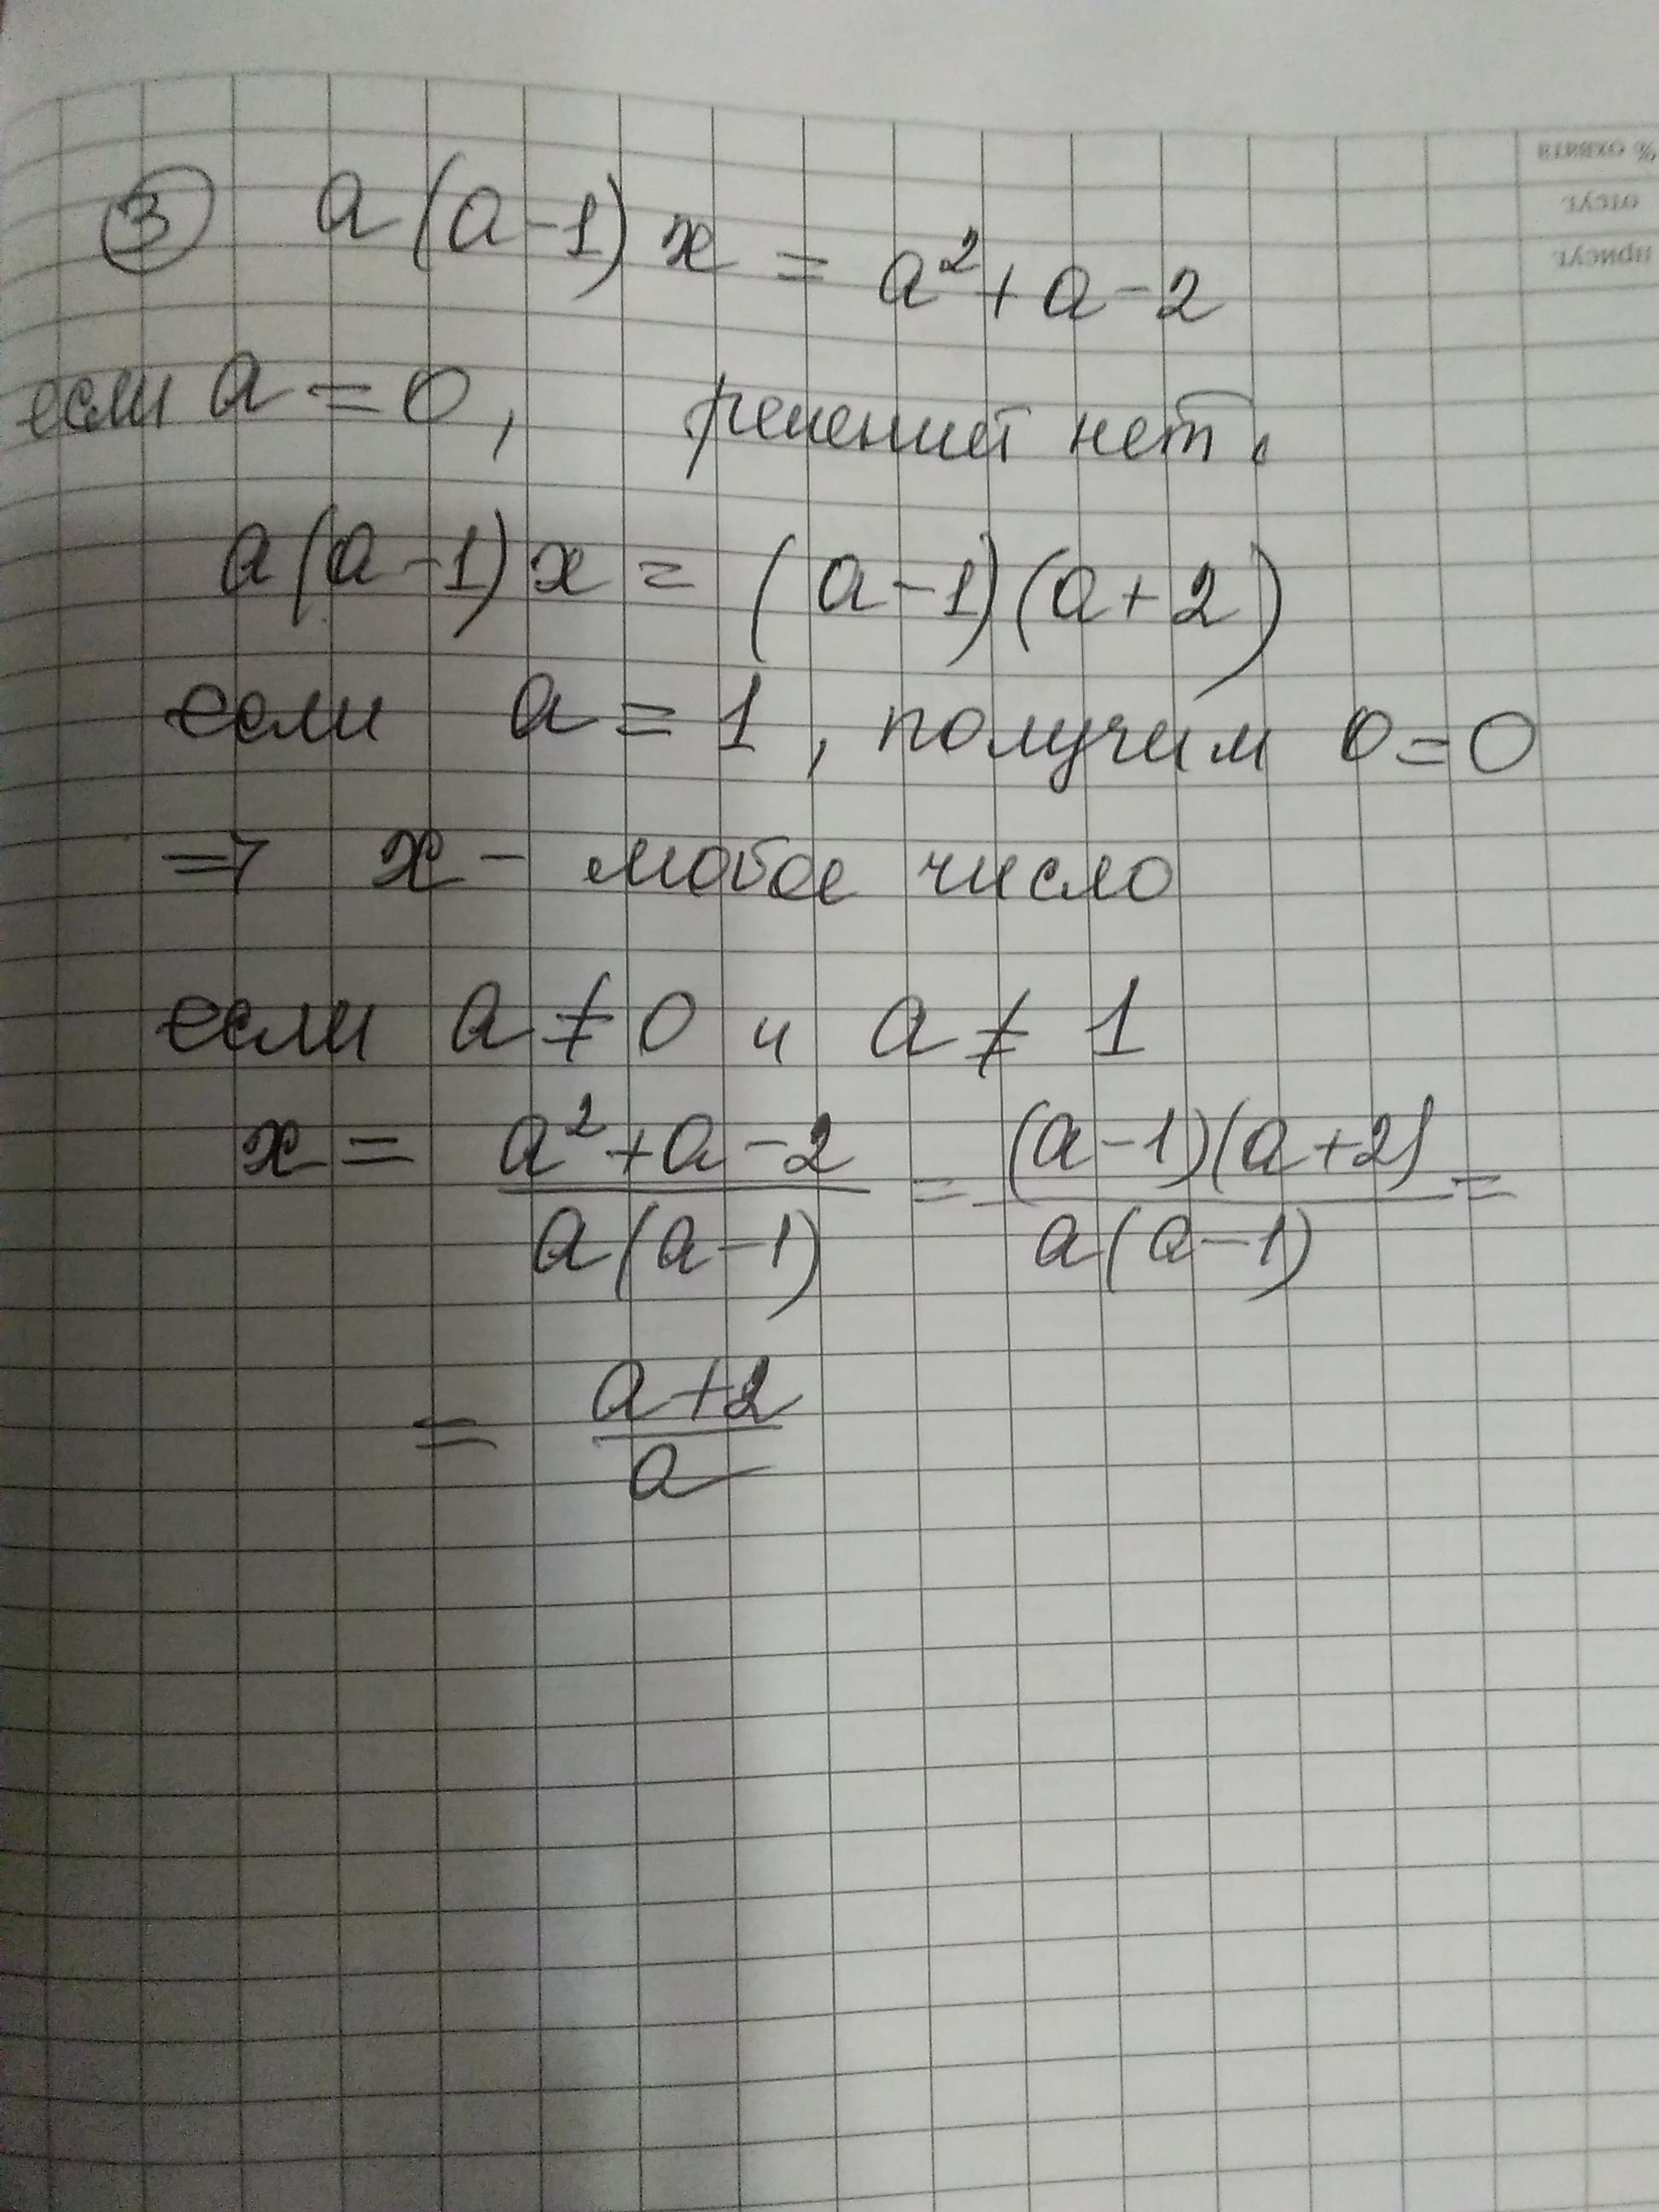 ③ a(a-1)x = a²+a-2
если a=0, решений нет.
a(a-1)x = (a-1)(a+2)
если a=1, получим 0=0
=> x - любое число
если a≠0 и a≠1
x = \frac{a²+a-2}{a(a-1)} = \frac{(a-1)(a+2)}{a(a-1)} =
= \frac{a+2}{a}
% охвата
отсут.
присут.